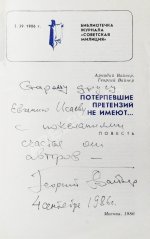 1 (7) 1986 г.
БИБЛИОТЕЧКА
ЖУРНАЛА
«СОВЕТСКАЯ
МИЛИЦИЯ»
Аркадий Вайнер,
Георгий Вайнер
Старому другу
Евгению
ПОТЕРПЕВШИЕ
ПРЕТЕНЗИЙ
НЕ ИМЕЮТ...
с пожеланиями
ПОВЕСТЬ
счастья от
авторов –
Георгий Вайнер
4 сентября 1986г.
Москва, 1986